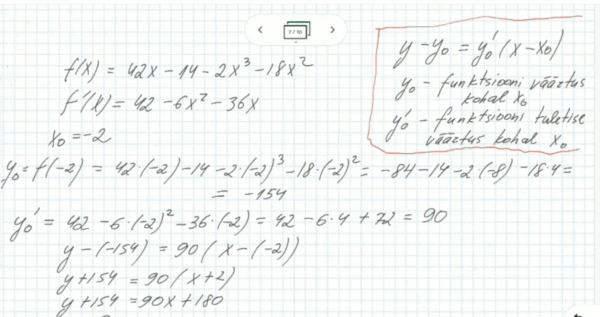 7 / 10
y - y₀ = y₀'(x - x₀)
y₀ - funktsiooni väärtus
kohal x₀
y₀' - funktsiooni tuletise
väärtus kohal x₀
f(x) = 42x - 14 - 2x³ - 18x²
f'(x) = 42 - 6x² - 36x
x₀ = -2
y₀ = f(-2) = 42·(-2) - 14 - 2·(-2)³ - 18·(-2)² = -84 - 14 - 2·(-8) - 18·4 =
= -154
y₀' = 42 - 6·(-2)² - 36·(-2) = 42 - 6·4 + 72 = 90
y - (-154) = 90(x - (-2))
y + 154 = 90(x + 2)
y + 154 = 90x + 180